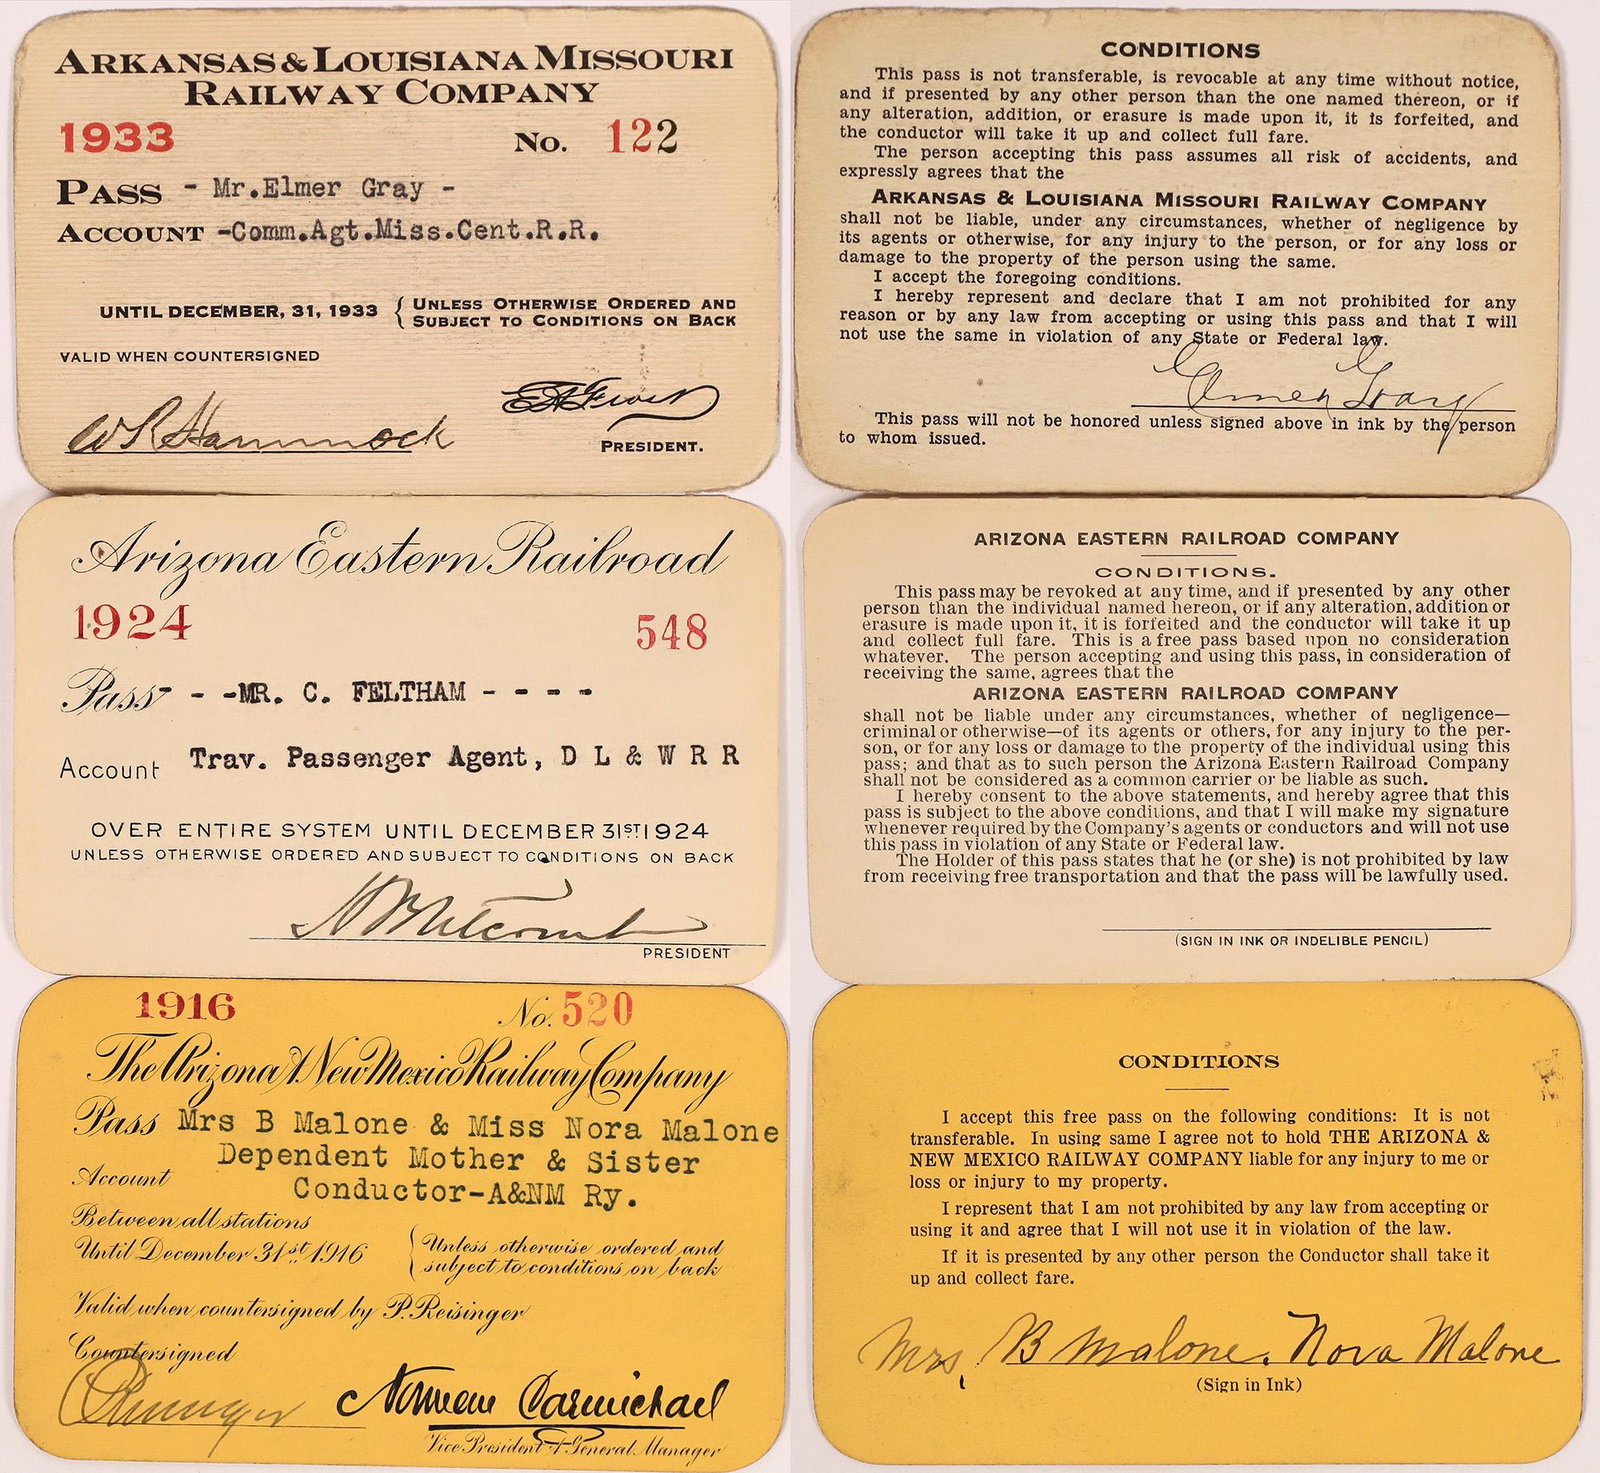 ARKANSAS & LOUISIANA MISSOURI
RAILWAY COMPANY
1933 No. 122
PASS - Mr.Elmer Gray -
ACCOUNT -Comm.Agt.Miss.Cent.R.R.
UNTIL DECEMBER, 31, 1933 { UNLESS OTHERWISE ORDERED AND
SUBJECT TO CONDITIONS ON BACK
VALID WHEN COUNTERSIGNED
W R Hammock
E A Frost
PRESIDENT.
CONDITIONS
This pass is not transferable, is revocable at any time without notice,
and if presented by any other person than the one named thereon, or if
any alteration, addition, or erasure is made upon it, it is forfeited, and
the conductor will take it up and collect full fare.
The person accepting this pass assumes all risk of accidents, and
expressly agrees that the
ARKANSAS & LOUISIANA MISSOURI RAILWAY COMPANY
shall not be liable, under any circumstances, whether of negligence by
its agents or otherwise, for any injury to the person, or for any loss or
damage to the property of the person using the same.
I accept the foregoing conditions.
I hereby represent and declare that I am not prohibited for any
reason or by any law from accepting or using this pass and that I will
not use the same in violation of any State or Federal law.
Elmer Gray
This pass will not be honored unless signed above in ink by the person
to whom issued.
Arizona Eastern Railroad
1924 548
Pass - -MR. C. FELTHAM - - - -
Account Trav. Passenger Agent, D L & W R R
OVER ENTIRE SYSTEM UNTIL DECEMBER 31ST 1924
UNLESS OTHERWISE ORDERED AND SUBJECT TO CONDITIONS ON BACK
PRESIDENT
ARIZONA EASTERN RAILROAD COMPANY
CONDITIONS.
This pass may be revoked at any time, and if presented by any other
person than the individual named hereon, or if any alteration, addition or
erasure is made upon it, it is forfeited and the conductor will take it up
and collect full fare. This is a free pass based upon no consideration
whatever. The person accepting and using this pass, in consideration of
receiving the same, agrees that the
ARIZONA EASTERN RAILROAD COMPANY
shall not be liable under any circumstances, whether of negligence—
criminal or otherwise—of its agents or others, for any injury to the per-
son, or for any loss or damage to the property of the individual using this
pass; and that as to such person the Arizona Eastern Railroad Company
shall not be considered as a common carrier or be liable as such.
I hereby consent to the above statements, and hereby agree that this
pass is subject to the above conditions, and that I will make my signature
whenever required by the Company's agents or conductors and will not use
this pass in violation of any State or Federal law.
The Holder of this pass states that he (or she) is not prohibited by law
from receiving free transportation and that the pass will be lawfully used.
(SIGN IN INK OR INDELIBLE PENCIL)
1916 No. 520
The Arizona & New Mexico Railway Company
Pass Mrs B Malone & Miss Nora Malone
Dependent Mother & Sister
Account Conductor-A&NM Ry.
Between all stations
Until December 31st 1916 { Unless otherwise ordered and
subject to conditions on back
Valid when countersigned by P. Reisinger
Countersigned
P Reisinger
Norman Carmichael
Vice President & General Manager
CONDITIONS
I accept this free pass on the following conditions: It is not
transferable. In using same I agree not to hold THE ARIZONA &
NEW MEXICO RAILWAY COMPANY liable for any injury to me or
loss or injury to my property.
I represent that I am not prohibited by any law from accepting or
using it and agree that I will not use it in violation of the law.
If it is presented by any other person the Conductor shall take it
up and collect fare.
Mrs, B Malone. Nora Malone
(Sign in Ink)